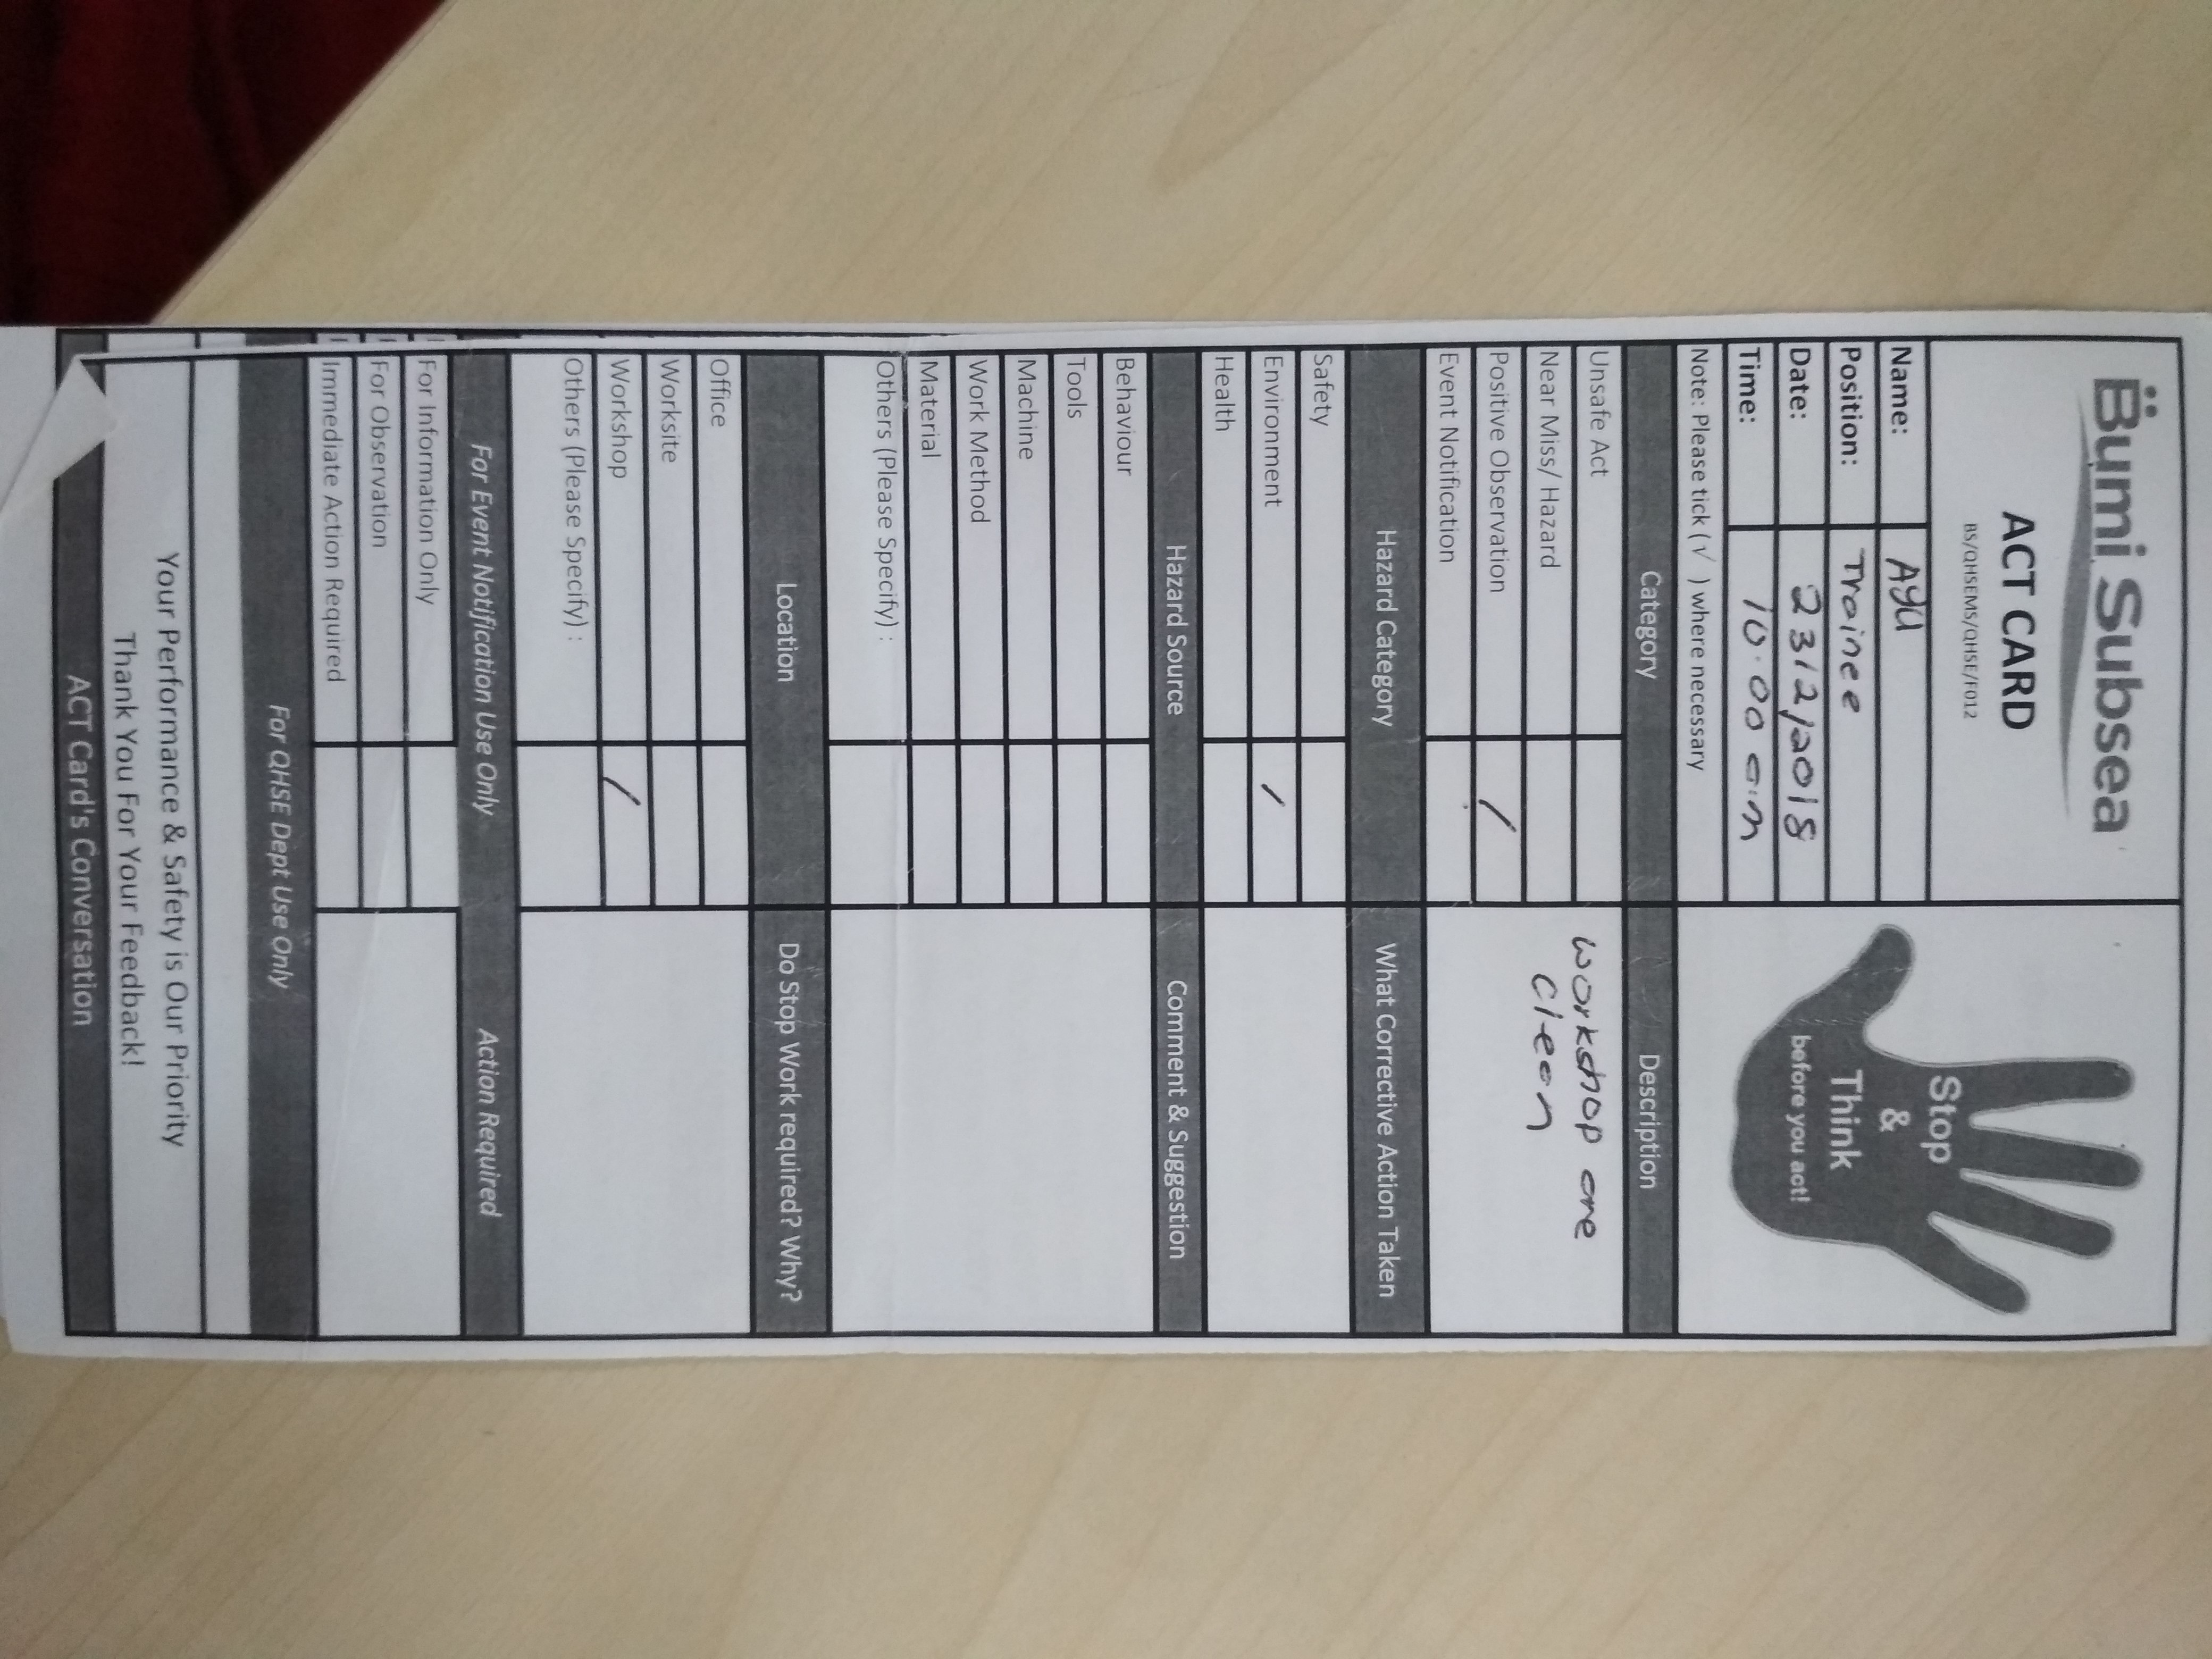 Bumi Subsea
ACT CARD
BS/QHSEMS/QHSE/F012
Stop
&
Think
before you act!
Name: Ayu
Position: Trainee
Date: 23/2/2018
Time: 10.00 a.m
Note: Please tick (√ ) where necessary
Category Description
Unsafe Act
Near Miss/ Hazard
Positive Observation /
Event Notification
workshop are
clean
Hazard Category What Corrective Action Taken
Safety
Environment /
Health
Hazard Source Comment & Suggestion
Behaviour
Tools
Machine
Work Method
Material
Others (Please Specify) :
Location Do Stop Work required? Why?
Office
Worksite
Workshop /
Others (Please Specify) :
For Event Notification Use Only Action Required
For Information Only
For Observation
Immediate Action Required
For QHSE Dept Use Only
Your Performance & Safety is Our Priority
Thank You For Your Feedback!
ACT Card's Conversation